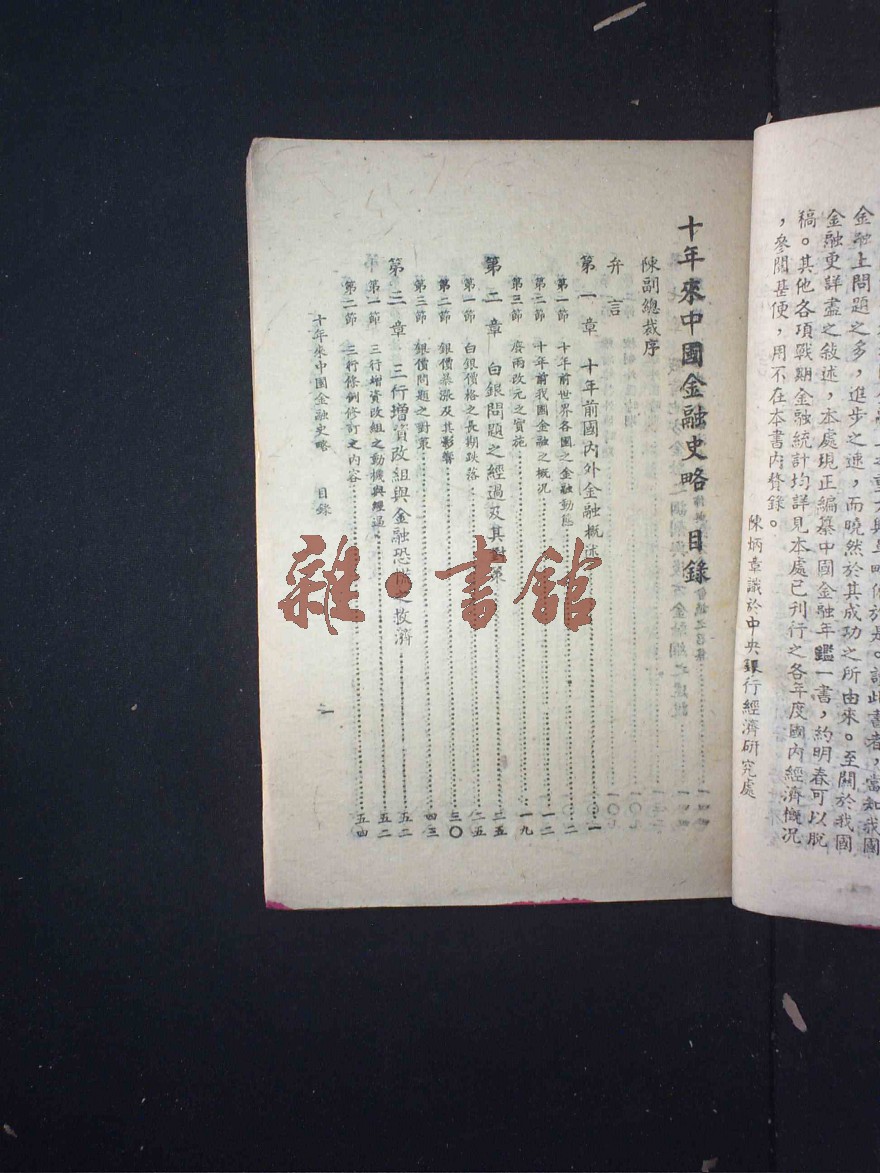 金融上問題之多，進步之速，而曉然於其成功之所由來。至關於我國
金融更詳盡之敘述，本處現正編纂中國金融年鑑一書，約明春可以脫
稿。其他各項戰期金融統計均詳見本處已刊行之各年度國內經濟概況
，參閱甚便，用不在本書內贅錄。
陳炳章識於中央銀行經濟研究處
十年來中國金融史略 目錄
陳副總裁序
弁言
第一章 十年前國內外金融概述 一
第一節 十年前世界各國之金融動態 二
第二節 十年前我國金融之概況 一二
第三節 廢兩改元之實施 一九
第二章 白銀問題之經過及其對策 二五
第一節 白銀價格之長期跌落 二五
第二節 銀價暴漲及其影響 三〇
第三節 銀價問題之對策 四三
第三章 三行增資改組與金融恐慌之救濟 五二
第一節 三行增資改組之動機與經過 五二
第二節 三行條例修訂之內容 五四
十年來中國金融史略 目錄 一
雜·書館